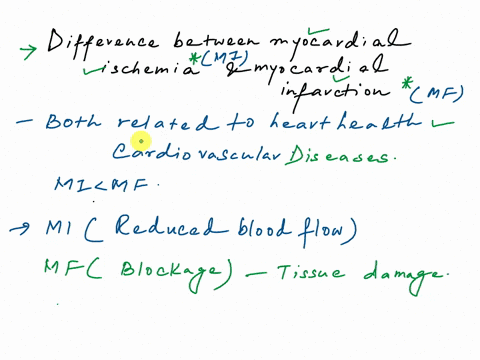 → Difference between myocardial
ischemia *(MI) & myocardial
infarction *(MF)
- Both related to heart health ✓
Cardiovascular Diseases.
MI < MF.
→ MI ( Reduced blood flow)
MF ( Blockage) - Tissue damage.